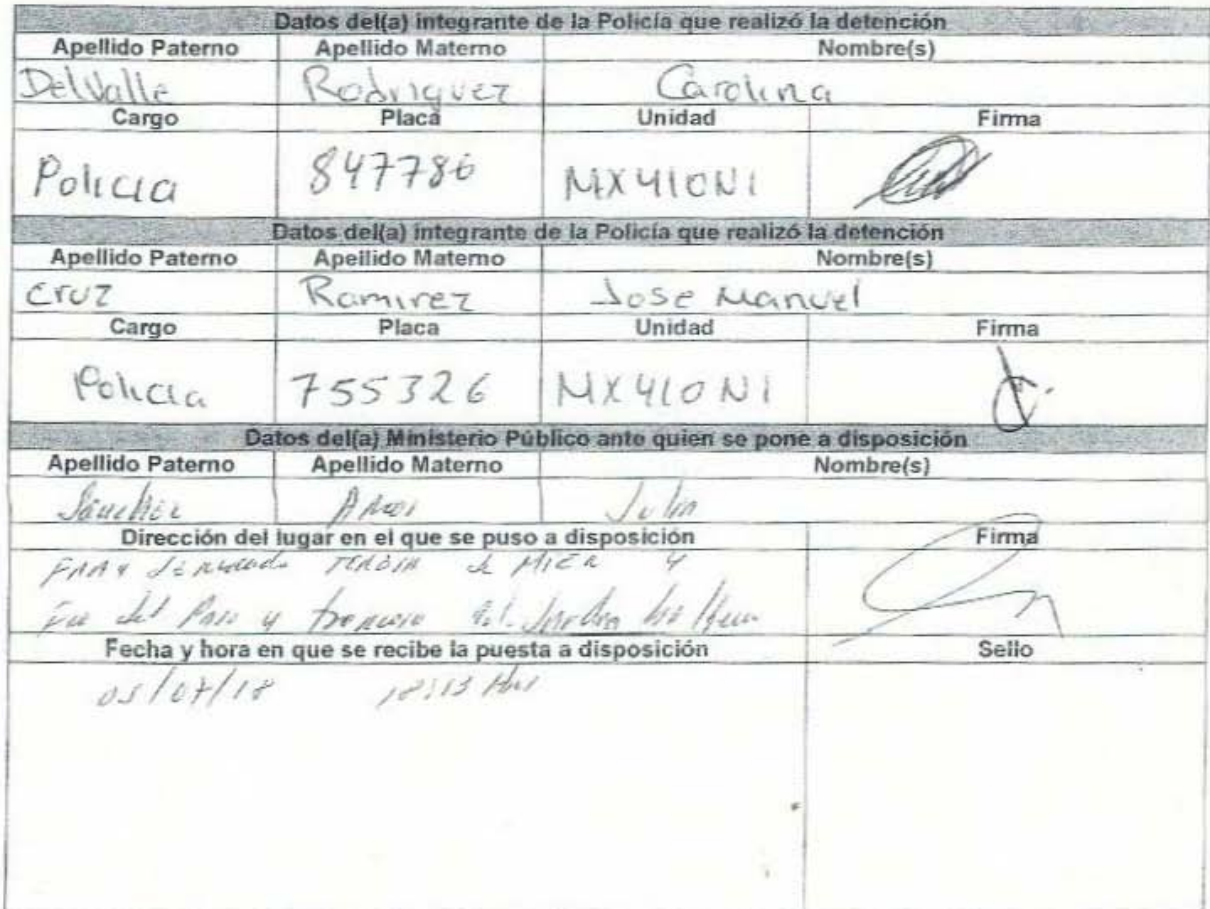 Datos del(a) integrante de la Policía que realizó la detención
Apellido Paterno Apellido Materno Nombre(s)
DelValle Rodriguez Carolina
Cargo Placa Unidad Firma
Policia 847786 MX410N1
Datos del(a) integrante de la Policía que realizó la detención
Apellido Paterno Apellido Materno Nombre(s)
Cruz Ramirez Jose Manuel
Cargo Placa Unidad Firma
Policia 755326 MX410N1
Datos del(a) Ministerio Público ante quien se pone a disposición
Apellido Paterno Apellido Materno Nombre(s)
Sánchez
Dirección del lugar en el que se puso a disposición Firma
FRAY de MIER y
del Paso y
Fecha y hora en que se recibe la puesta a disposición Sello